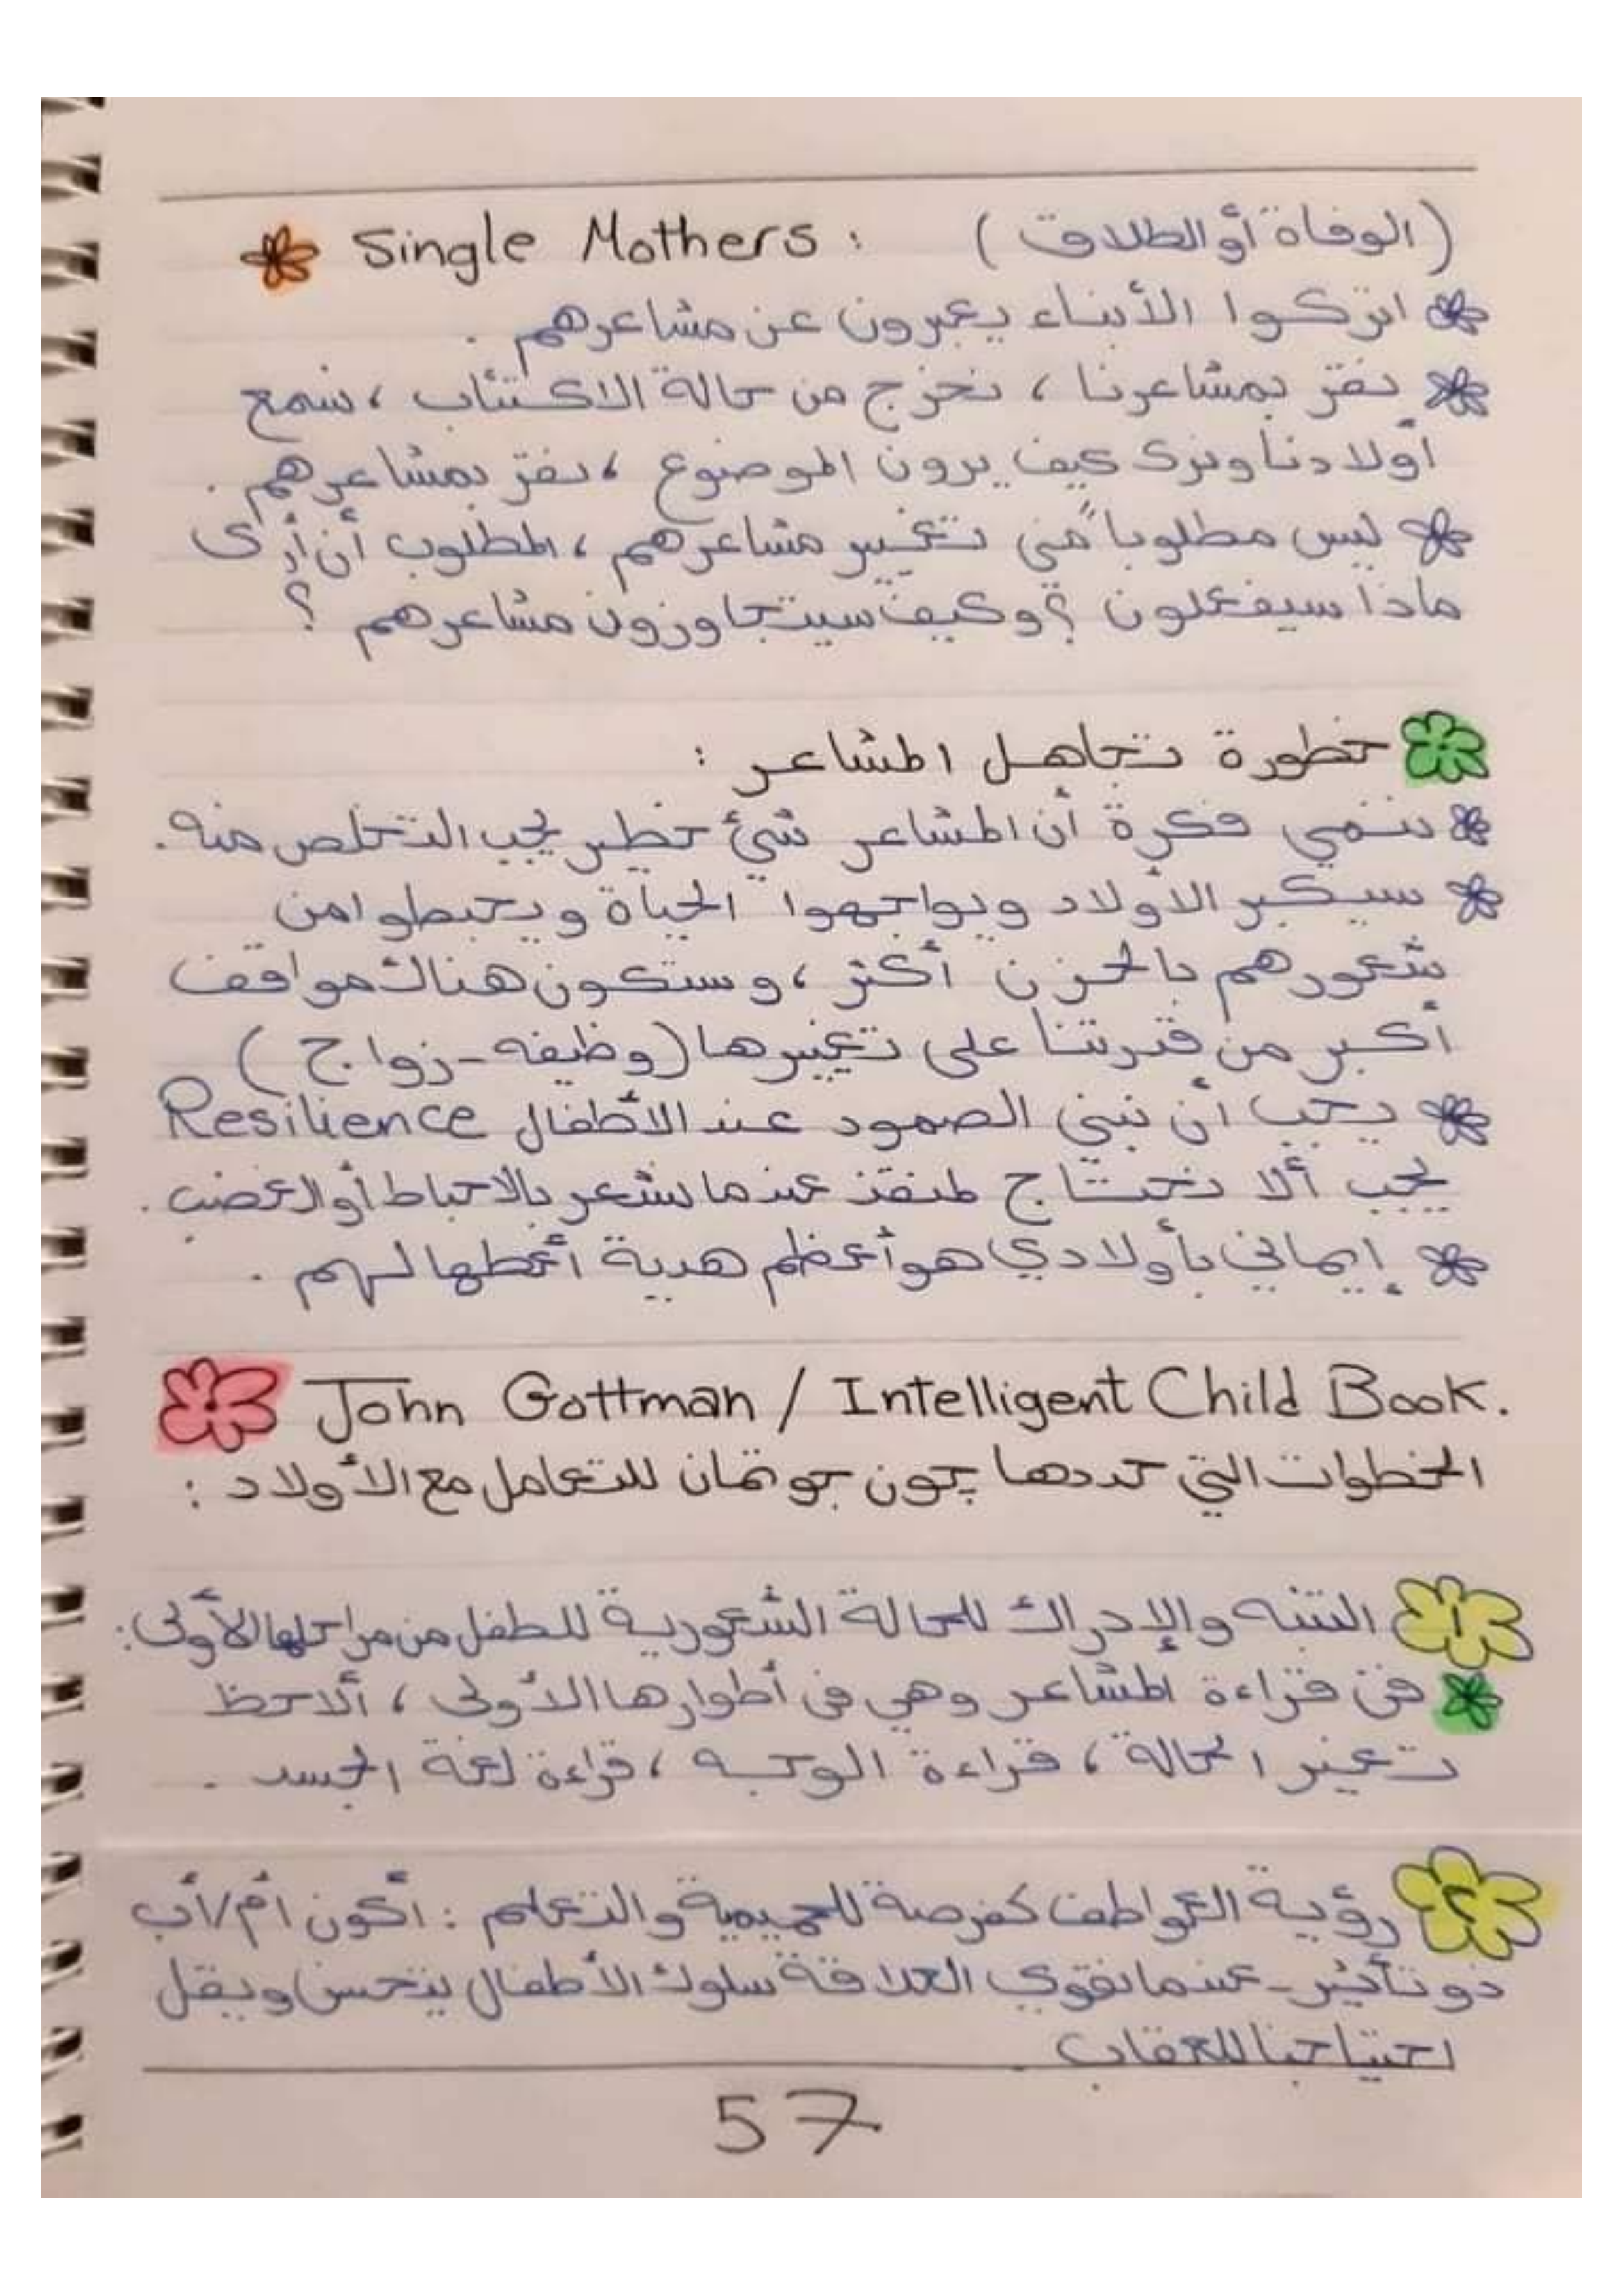 Single Mothers : (الوفاة أو الطلاق)
اتركوا الأبناء يعبرون عن مشاعرهم .
نقرّ بمشاعرنا ، نخرج من حالة الاكتئاب ، نسمع
أولادنا ونرى كيف يرون الموضوع ، نقرّ بمشاعرهم .
ليس مطلوباً مني تغيير مشاعرهم ، المطلوب أن أرى
ماذا سيفعلون ؟ وكيف سيتجاوزون مشاعرهم ؟
خطورة تجاهل المشاعر :
ننمي فكرة أن المشاعر شيئ خطير يجب التخلص منه .
سيكبر الأولاد ويواجهوا الحياة ويحبطوا من
شعورهم بالحزن أكثر ، وستكون هناك مواقف
أكبر من قدرتنا على تغييرها (وظيفه - زواج )
يجب أن نبني الصمود عند الأطفال Resilience
يجب ألا نحتاج لمنقذ عندما نشعر بالاحباط أو الغضب .
إيماني بأولادي هو أعظم هدية أعطها لهم .
John Gottman / Intelligent Child Book.
الخطوات التي حددها چون جوتمان للتعامل مع الأولاد :
١ التنبه والإدراك للحالة الشعورية للطفل من مراحلها الأولى :
فن قراءة المشاعر وهي فى أطوارها الأولى ، ألاحظ
تغير الحالة ، قراءة الوجه ، قراءة لغة الجسد .
٢ رؤية العواطف كفرصة للحميمية والتعلم : أكون أم/أب
ذو تأثير - عندما نقوي العلاقة سلوك الأطفال يتحسن ويقل
احتياجنا للعقاب .
57